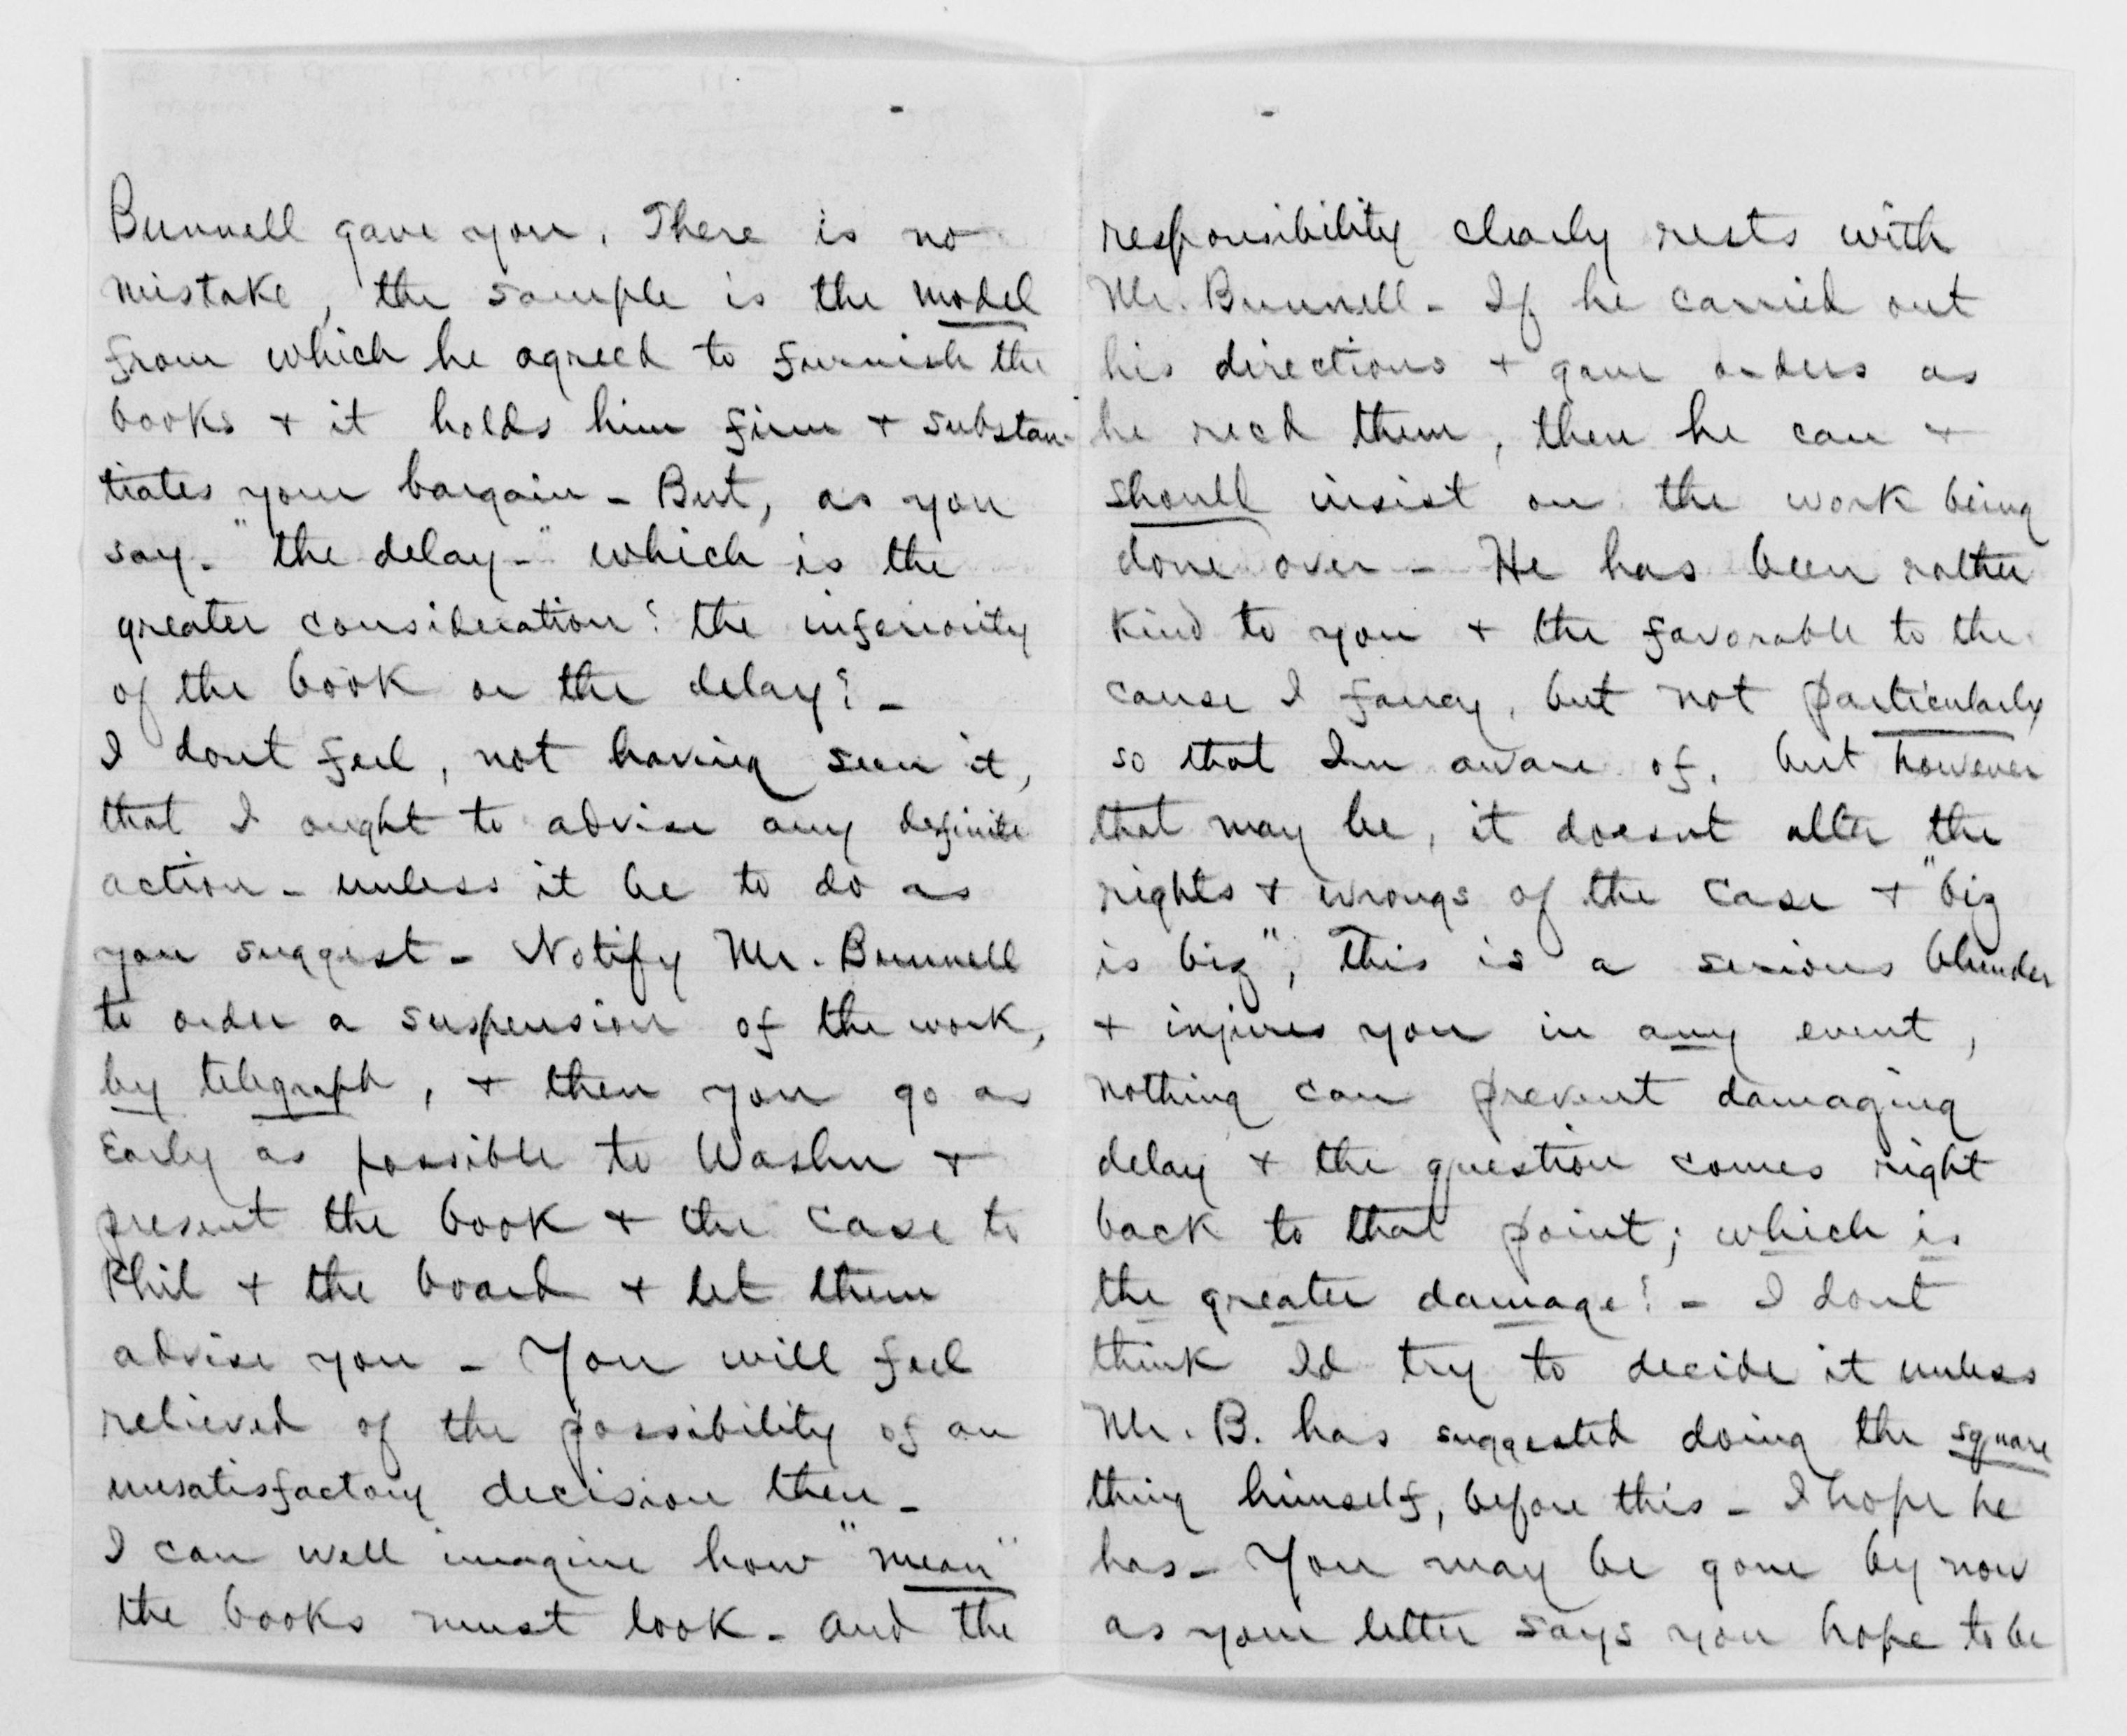 Bunnell gave you. There is no
mistake, the sample is the model
from which he agreed to furnish the
books + it holds him firm + substan-
tiates your bargain - But, as you
say - "the delay -" which is the
greater consideration? the inferiority
of the book or the delay? -
I dont feel, not having seen it,
that I ought to advise any definite
action - unless it be to do as
you suggest - Notify Mr. Bunnell
to order a suspension of the work,
by telegraph, + then you go as
early as possible to Washn +
present the book + the case to
Phil + the board + let them
advise you - You will feel
relieved of the possibility of an
unsatisfactory decision then -
I can well imagine how "mean"
the books must look - and the
responsibility clearly rests with
Mr. Bunnell - If he carried out
his directions + gave orders as
he recd them, then he can +
should insist on the work being
done over - He has been rather
kind to you + the favorable to the
cause I fancy, but not particularly
so that Im aware of, but however
that may be, it doesnt alter the
rights + wrongs of the case + "biz
is biz", this is a serious blunder
+ injures you in any event,
nothing can prevent damaging
delay + the question comes right
back to that point; which is
the greater damage? - I dont
think Id try to decide it unless
Mr. B. has suggested doing the square
thing himself, before this - I hope he
has - You may be gone by now
as your letter says you hope to be